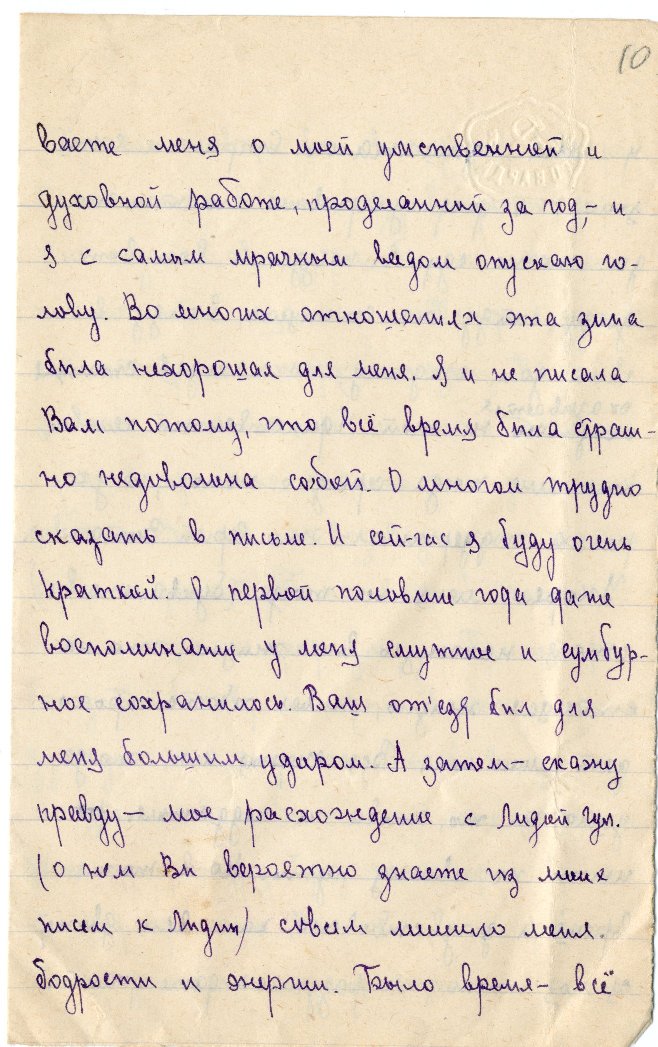 10
ваете меня о моей умственной и
духовной работе, проделанной за год, – и
я с самым мрачным видом опускаю го-
лову. Во многих отношениях эта зима
была нехорошая для меня. Я и не писала
Вам потому, что всё время была страш-
но недовольна собой. О многом трудно
сказать в письме. И сейчас я буду очень
краткой. О первой половине года даже
воспоминание у меня смутное и сумбур-
ное сохранилось. Ваш от'езд был для
меня большим ударом. А затем – скажу
правду – мое расхождение с Лидией
(о нем Вы вероятно знаете из моих
писем к Лидии) совсем лишило меня
бодрости и энергии. Было время – всё